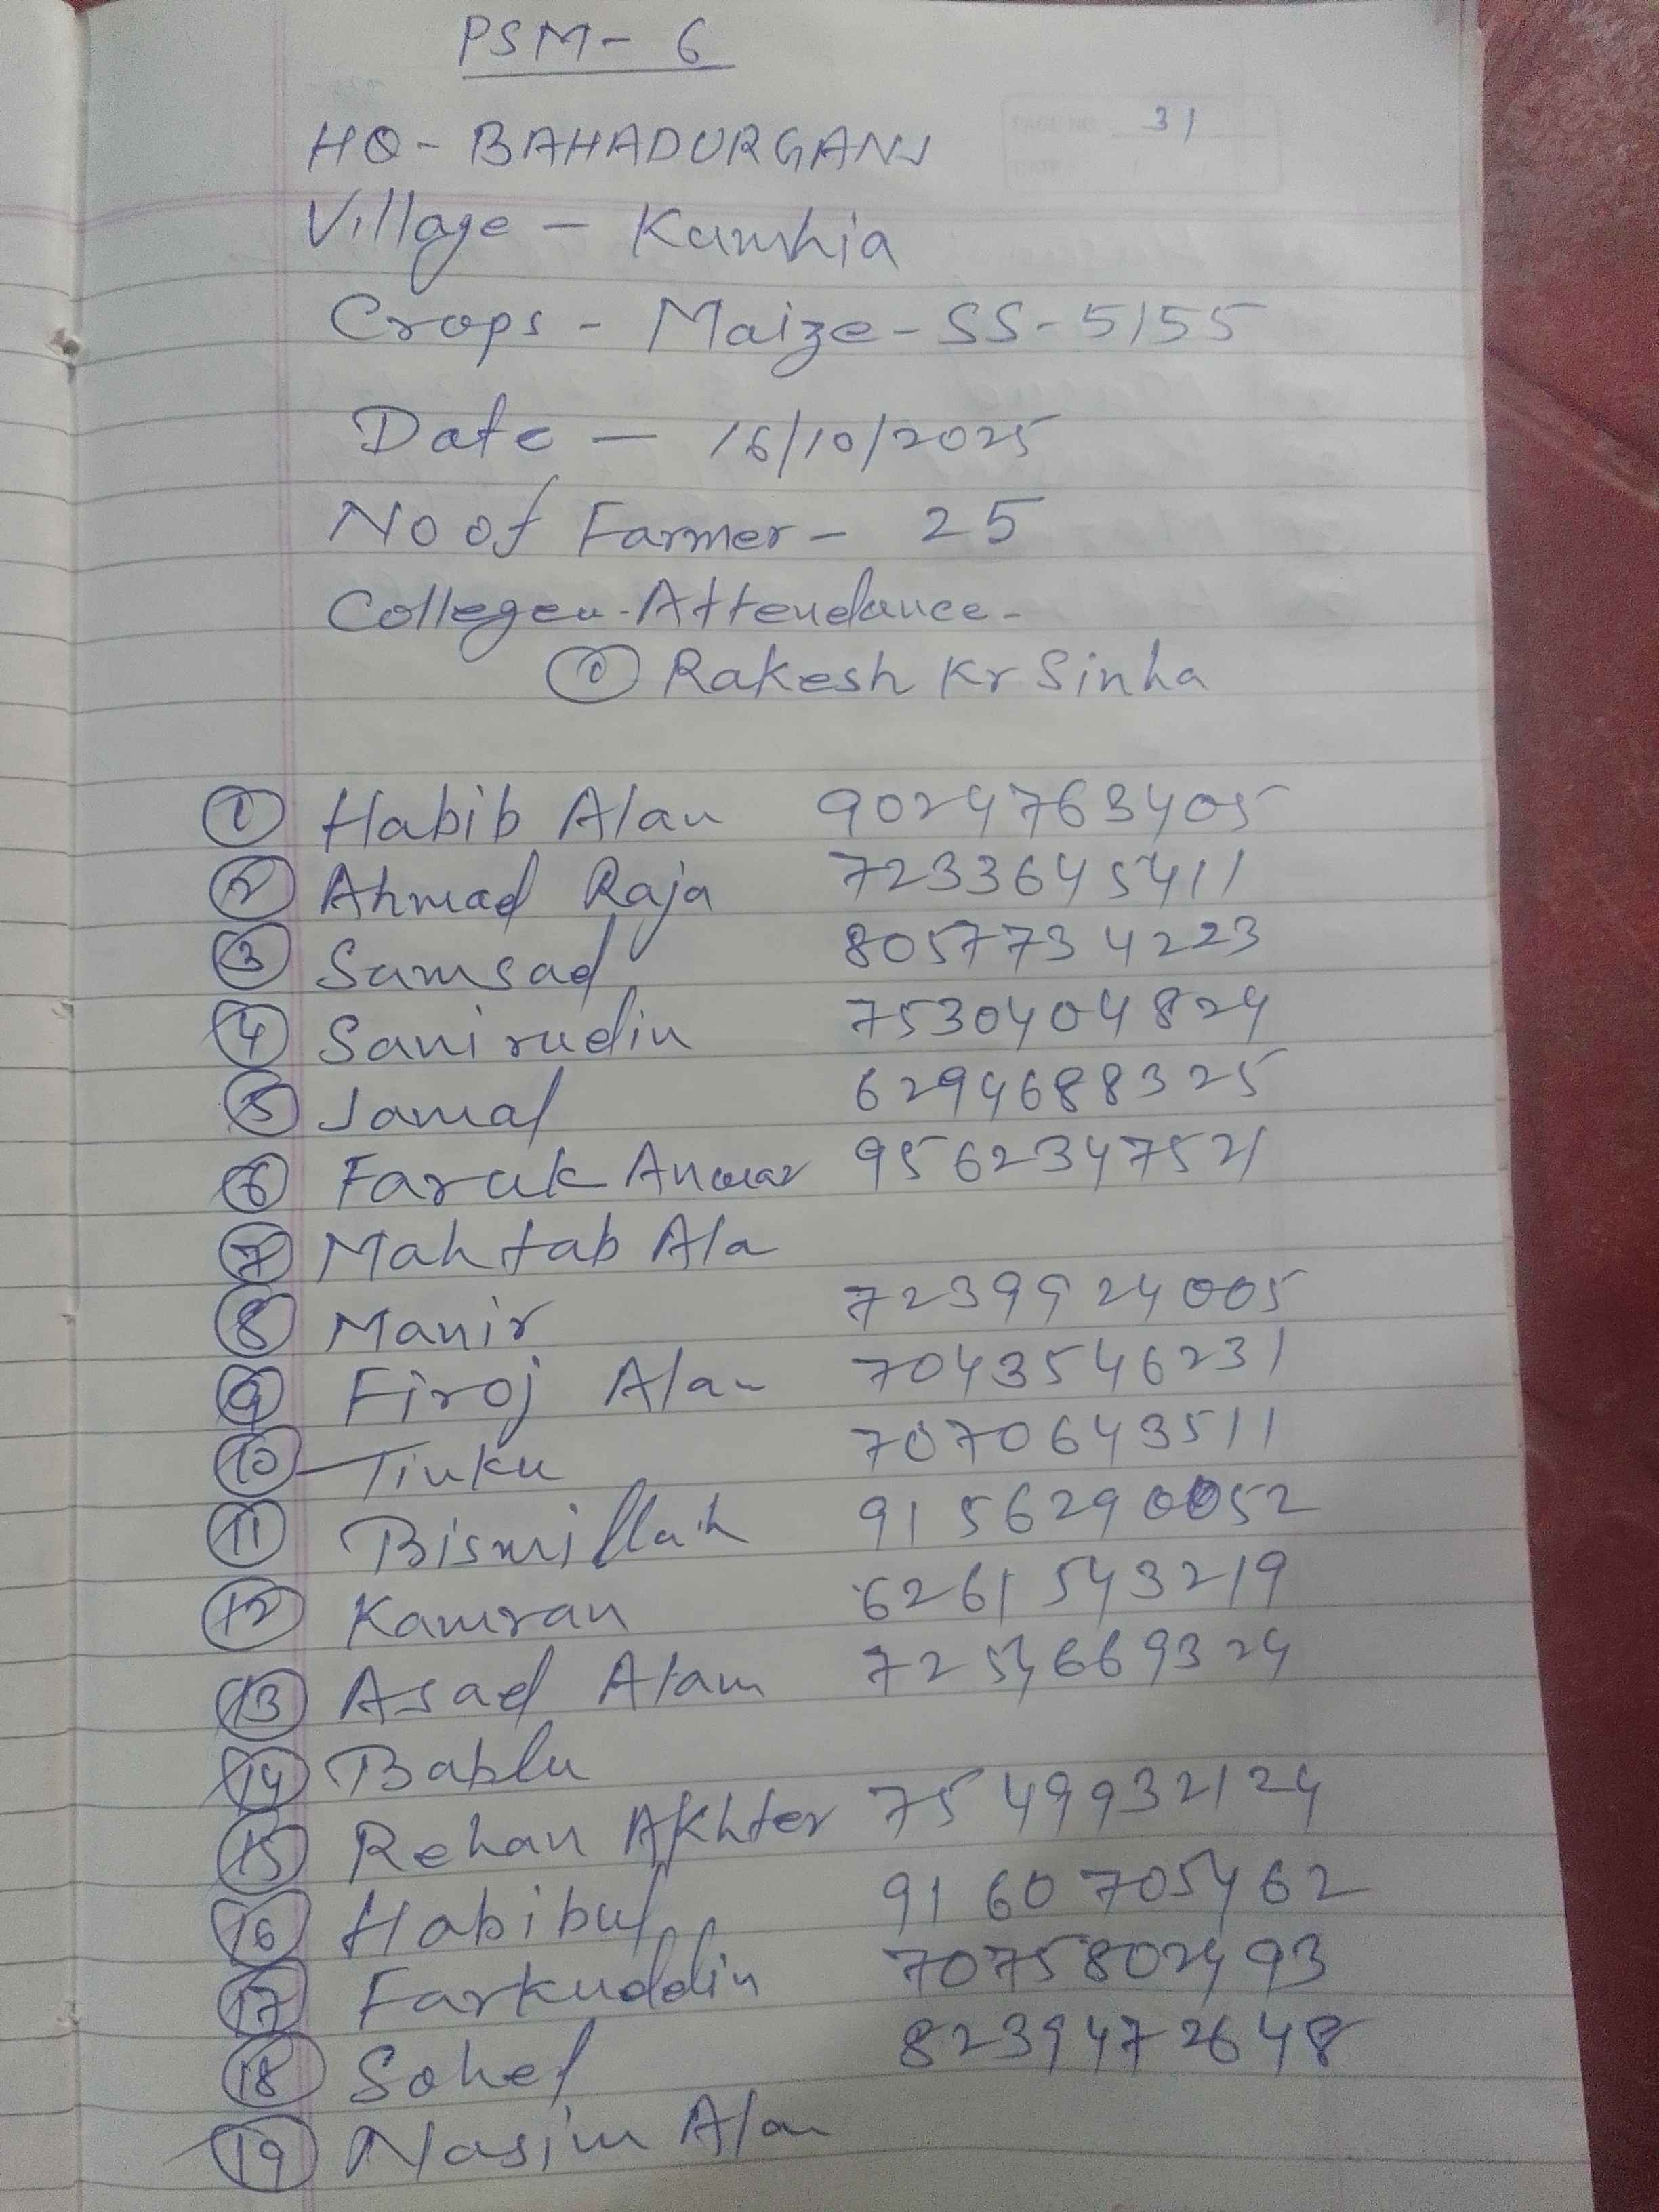 PSM - 6
PAGE NO. 31
DATE
HQ - BAHADURGANJ
Village - Kamhia
Crops - Maize - SS - 5155
Date - 16/10/2025
No of Farmer - 25
Collegeu - Attendance -
① Rakesh Kr Sinha
① Habib Alan 9024763405
② Ahmad Raja 7233645411
③ Samsad 8057734223
④ Sanirudin 7530404824
⑤ Jamal 6294688325
⑥ Faruk Anwar 9562347521
⑦ Mahtab Ala
⑧ Manir 7239924005
⑨ Firoj Alan 7043546231
⑩ Tinku 7070643511
⑪ Bismillah 9156290052
⑫ Kamran 6261543219
⑬ Asad Alam 7254669324
⑭ Bablu
⑮ Rehan Akhter 7549932124
⑯ Habibul 9160705462
⑰ Farkuddin 7075802493
⑱ Sohel 8239472648
⑲ Nasim Alan